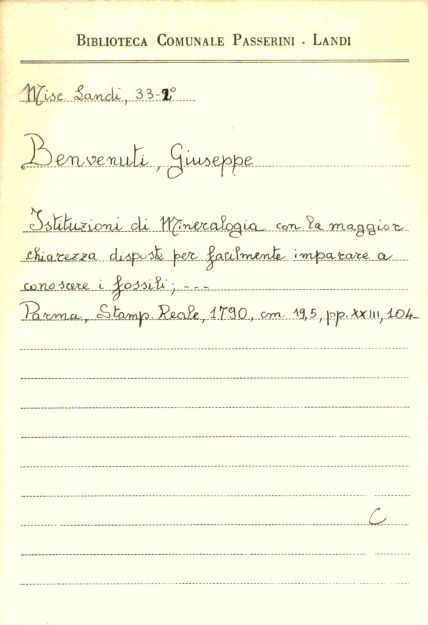 BIBLIOTECA COMUNALE PASSERINI - LANDI
Misc Landi, 33-2°
Benvenuti, Giuseppe
Istituzioni di Mineralogia con la maggior
chiarezza disposte per facilmente imparare a
conoscere i fossili; ---
Parma, Stamp. Reale, 1790, cm. 19,5, pp. XXIII, 104-
C